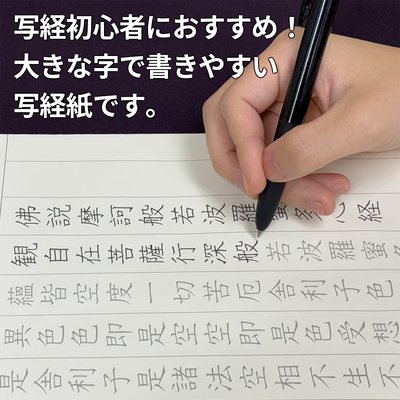 写経初心者におすすめ！
大きな字で書きやすい
写経紙です。
佛説摩訶般若波羅蜜多心経
観自在菩薩行深般若波羅蜜多
蘊皆空度一切苦厄舎利子色
異色色即是空空即是色受想
是舎利子是諸法空相不生不